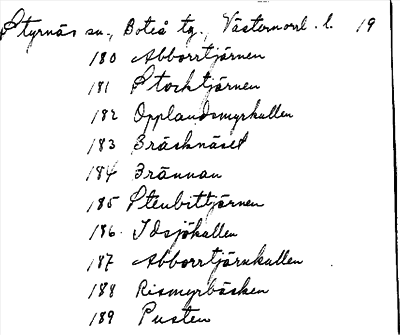 Styrnäs sn., Boteå tg., Västernorrl. l. 19
180 Abborrtjärnen
181 Stocktjärnen
182 Opplandsmyrkullen
183 Bräcknäset
184 Brännan
185 Stenbittjärnen
186. Idsjökullen
187 Abborrtjärnkullen
188 Rismyrbäcken
189 Pusten